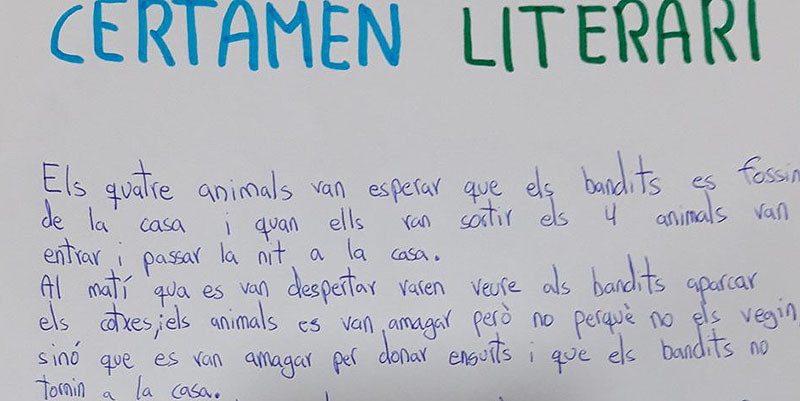 CERTAMEN LITERARI
Els quatre animals van esperar que els bandits es fossin
de la casa i quan ells van sortir els 4 animals van
entrar i passar la nit a la casa.
Al matí qua es van despertar varen veure als bandits aparcar
els cotxes, i els animals es van amagar però no perquè no els vegin,
sinó que es van amagar per donar ensurts i que els bandits no
tornin a la casa.